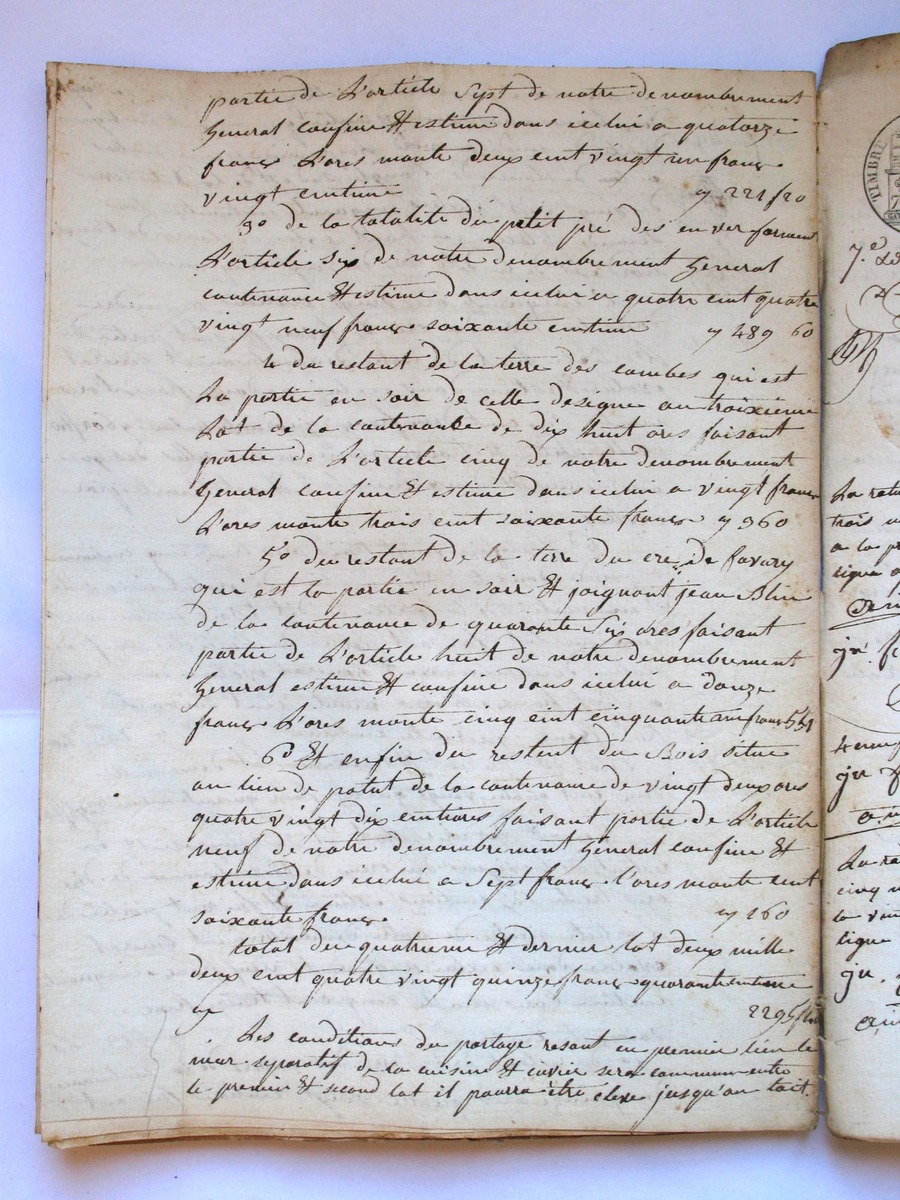 partie de L'article Sept de notre denombrement
General confine & estime dans icelui a quatorze
franc L'ares monte deux cent vingt un franc
vingt centime 221 f 20
3o de la totalite du petit pré des en ver formant
L'article six de notre denombrement General
contenance & estime dans icelui a quatre cent quatre
vingt neuf franc soixante centime 489 60
4 du restant de la terre des combes qui est
La partie en soir de celle designe au troixieme
Lot de la contenance de dix huit ares faisant
partie de L'article cinq de notre denombrement
General confine & estime dans icelui a vingt franc
L'ares monte trois cent soixante franc 360
5o du restant de la terre du de favary
qui est la partie en soir & joignant jean Blin
de la contenance de quarante Six ares faisant
partie de L'article huit de notre denombrement
General estime & confine dans icelui a douze
franc L'ares monte cinq cent cinquante franc
6o & enfin du restent du Bois situe
au lieu de patut de la contenance de vingt deux ares
quatre vingt dix centiares faisant partie de L'article
neuf de notre denombrement General confine &
estime dans icelui a Sept franc l'ares monte cent
soixante franc 160
total du quatrieme & dernier lot deux mille
deux cent quatre vingt quinze franc quarante centime
Les conditions du partage resont en premier lieu le
mur separatif de la cuisine & cuvier sera commun entre
le premier & second lot il pourra être eleve jusqu'au toit.
TIMBRE
7.e
La
trois
a la
ligne
4
cinq
la
ligne